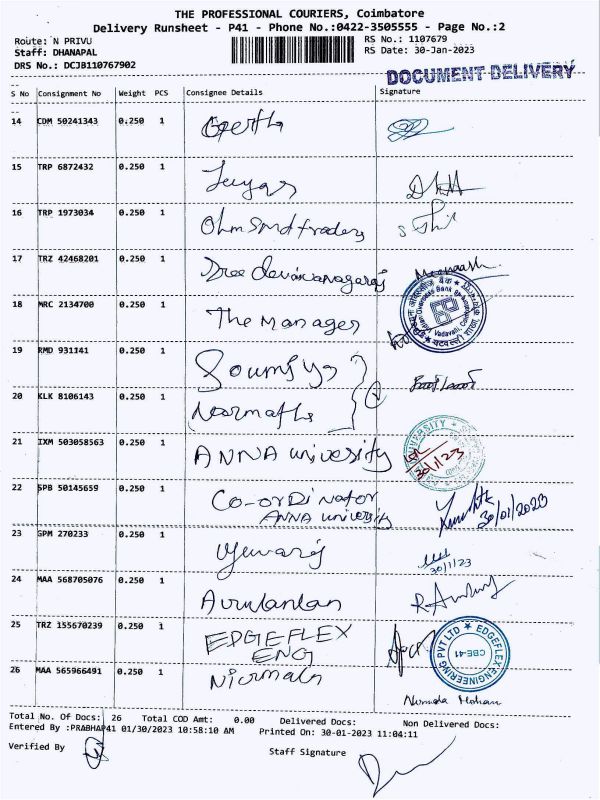 THE PROFESSIONAL COURIERS, Coimbatore
Delivery Runsheet - P41 - Phone No.:0422-3505555 - Page No.:2
Route: N PRIVU
RS No.: 1107679
Staff: DHANAPAL
RS Date: 30-Jan-2023
DRS No.: DCJB110767902
DOCUMENT DELIVERY
S No Consignment No Weight PCS Consignee Details Signature
14 CDM 50241343 0.250 1 Geetha
15 TRP 6872432 0.250 1
16 TRP 1973034 0.250 1 Ohm Smd traders
17 TRZ 42468201 0.250 1 Sree
18 MRC 2134700 0.250 1 The Manager
19 RMD 931141 0.250 1 Soumiya
20 KLK 8106143 0.250 1
21 IXM 503058563 0.250 1 ANNA univesity 30/1/23
22 SPB 50145659 0.250 1 Co-orDinator
ANNA university 30/01/2023
23 GPM 270233 0.250 1 30/1/23
24 MAA 568705076 0.250 1
25 TRZ 155670239 0.250 1 EDGEFLEX
ENG
EDGEFLEX ENGINEERING PVT LTD
CBE-41
26 MAA 565966491 0.250 1 Nirmala
Mohan
Total No. Of Docs: 26 Total COD Amt: 0.00 Delivered Docs: Non Delivered Docs:
Entered By :PRABHAP41 01/30/2023 10:58:10 AM Printed On: 30-01-2023 11:04:11
Verified By Staff Signature